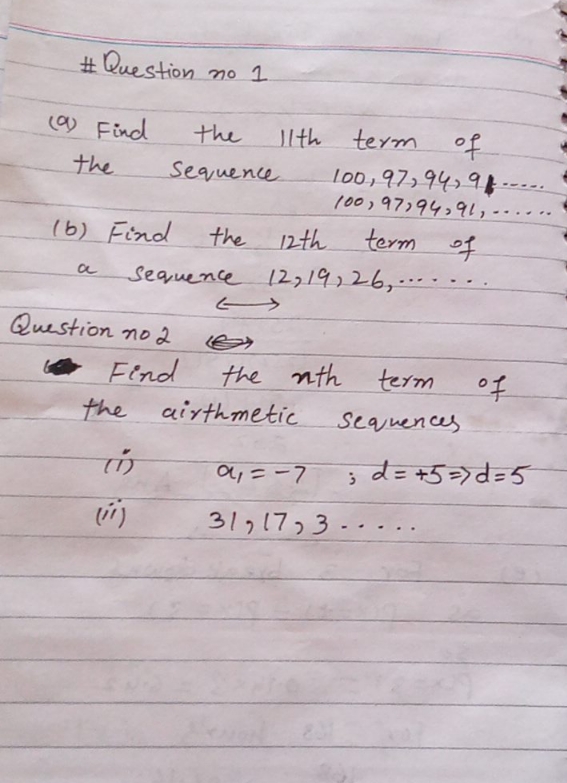 # Question no 1
(a) Find the 11th term of
the sequence 100, 97, 94, 91......
100, 97, 94, 91, .......
(b) Find the 12th term of
a sequence 12, 19, 26, .......
Question no 2
Find the nth term of
the airthmetic sequences
(i) a₁ = -7 ; d = +5 => d = 5
(ii) 31, 17, 3 .....